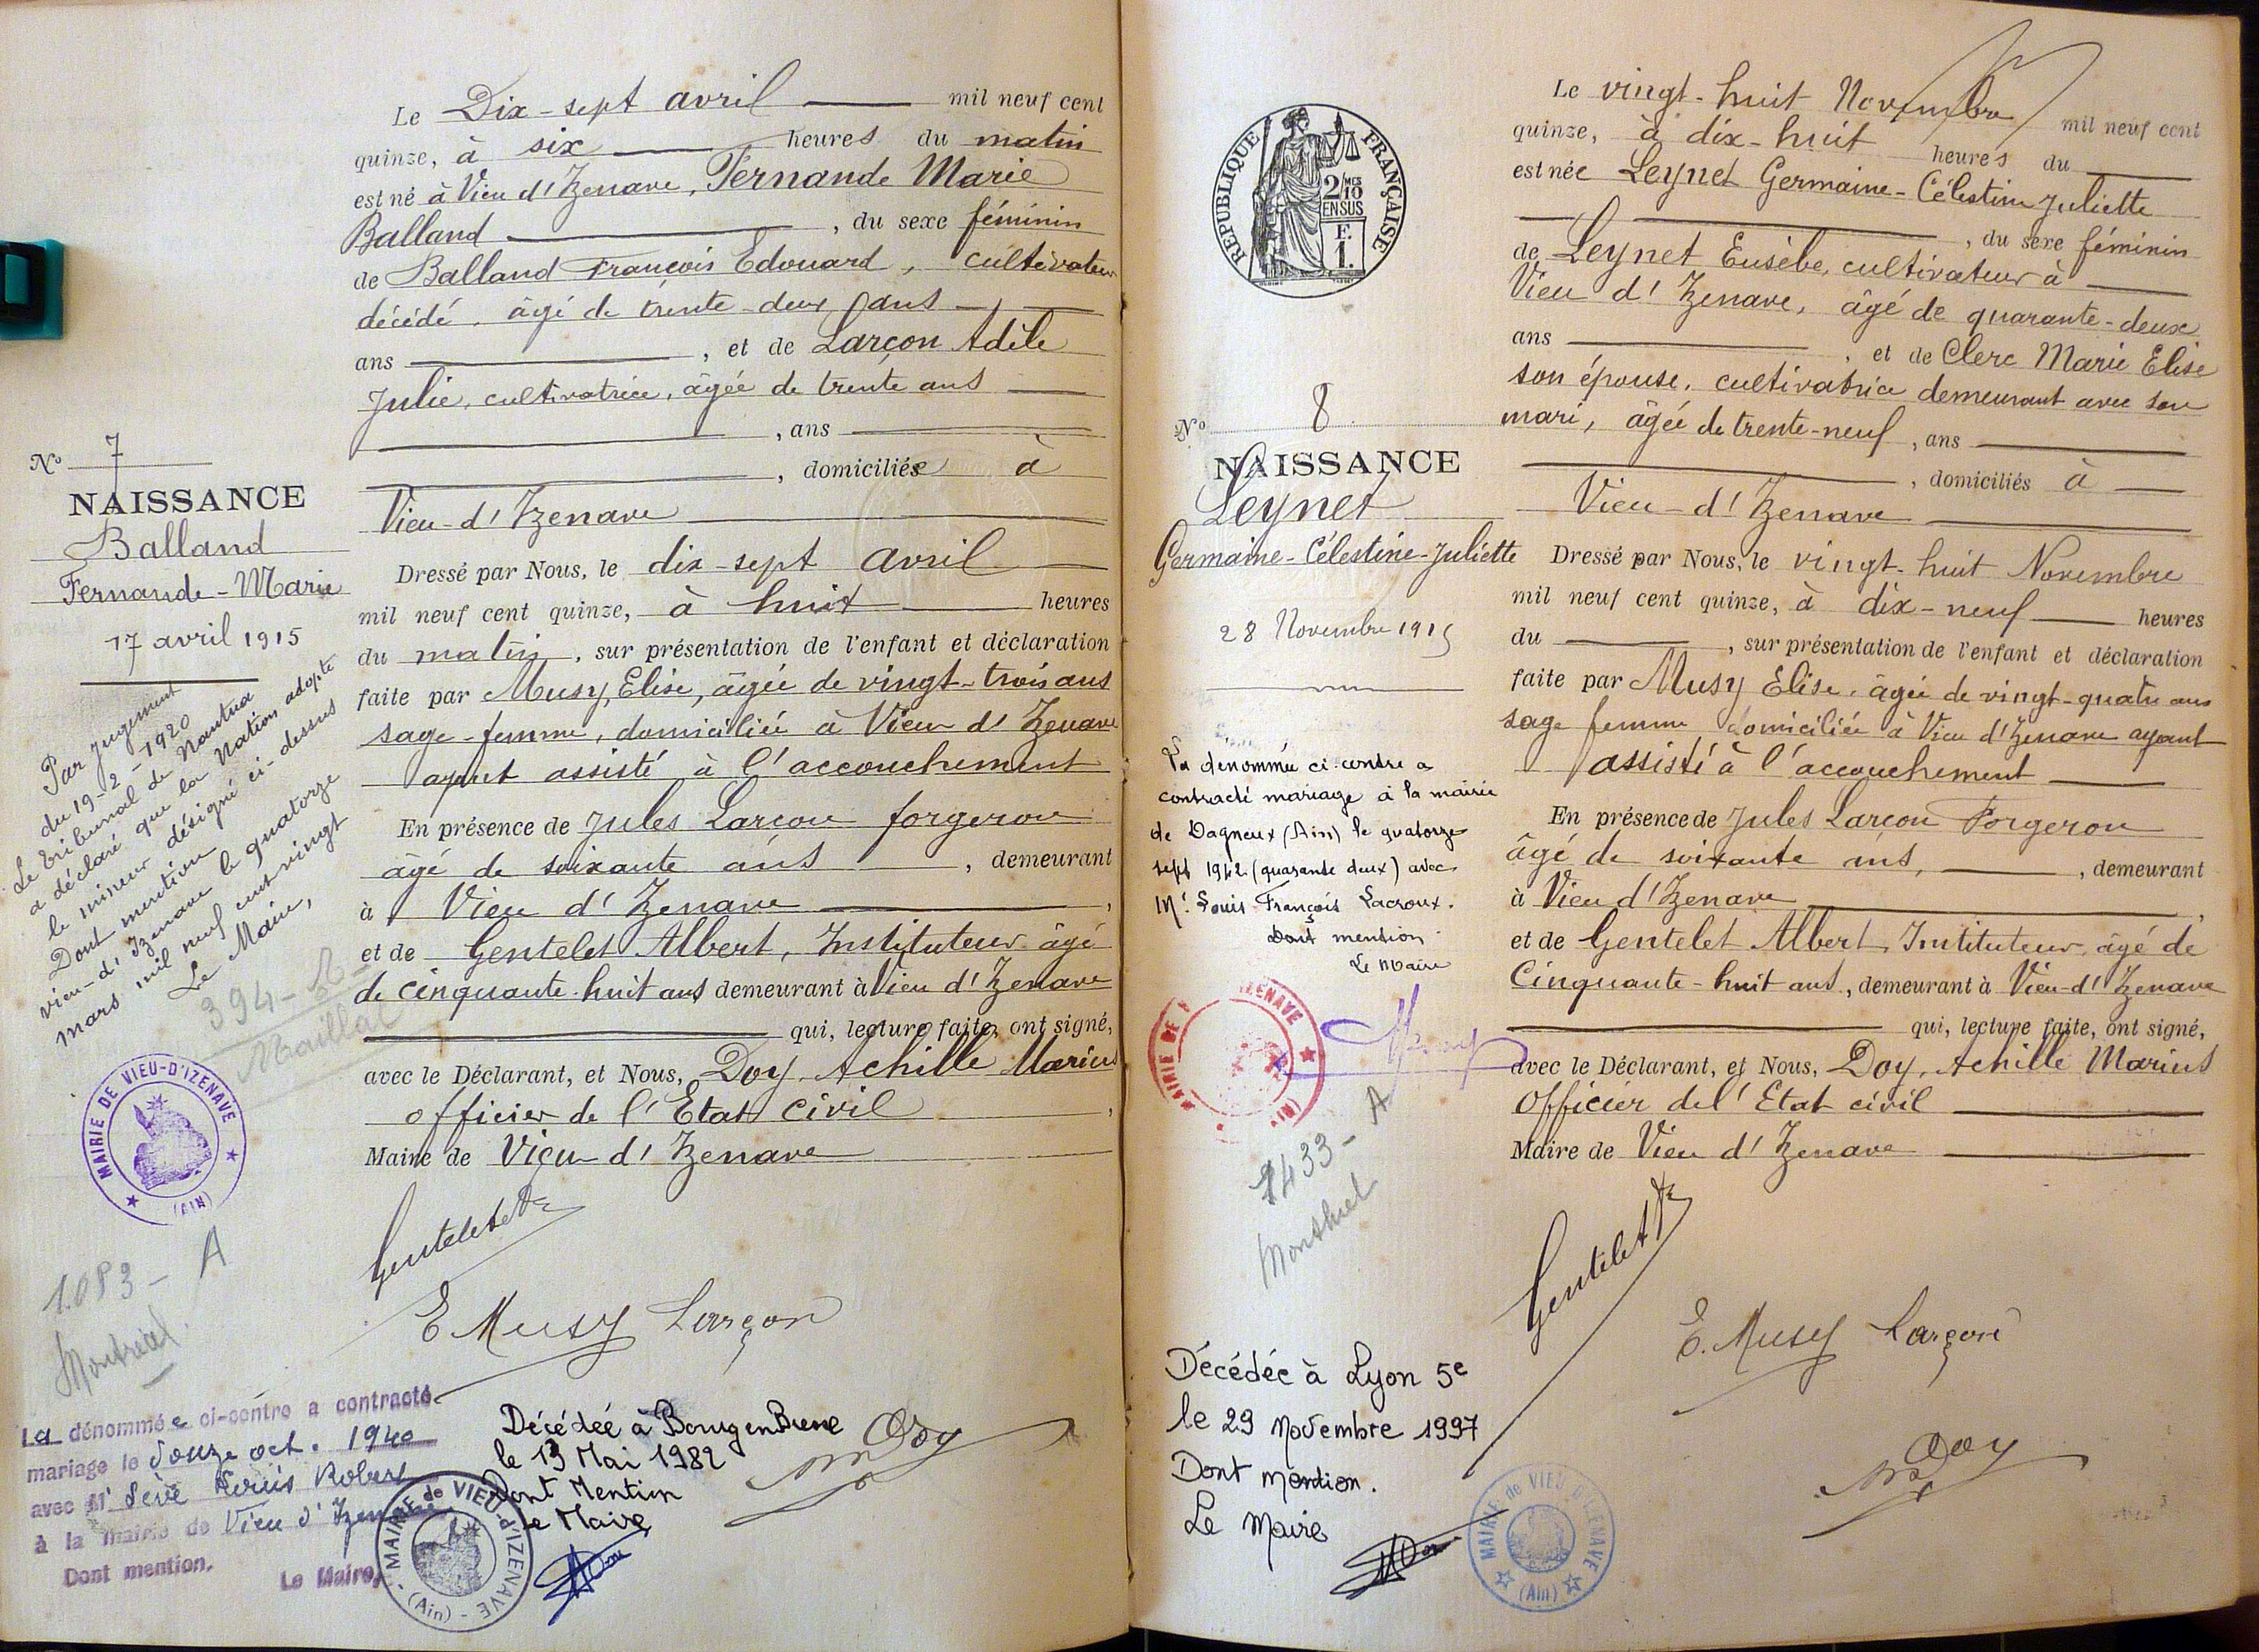 Le Dix-sept avril mil neuf cent
quinze, à six heures du matin
est né à Vieu d'Izenave, Fernande Marie
Balland , du sexe féminin
de Balland François Edouard, cultivateur
décédé, âgé de trente-deux ans
ans , et de Larçon Adèle
Julie, cultivatrice, âgée de trente ans
, ans
, domiciliée à
Vieu-d'Izenave
Dressé par Nous, le dix-sept avril
mil neuf cent quinze, à huit heures
du matin, sur présentation de l'enfant et déclaration
faite par Musy, Elise, âgée de vingt-trois ans
sage-femme, domiciliée à Vieu d'Izenave
ayant assisté à l'accouchement
En présence de Jules Larçon forgeron
âgé de soixante ans , demeurant
à Vieu d'Izenave ,
et de Gentelet Albert, Instituteur âgé
de cinquante-huit ans demeurant à Vieu d'Izenave
qui, lecture faite, ont signé,
avec le Déclarant, et Nous, Doy, Achille Marius
officier de l'Etat civil ,
Maire de Vieu d'Izenave
Gentelet
E Musy Larçon
Doy
N° 7
NAISSANCE
Balland
Fernande-Marie
17 avril 1915
Par jugement
du 19-2-1920
Le tribunal de Nantua
a déclaré que la Nation adopte
le mineur désigné ci-dessus
Dont mention
vieu-d'Izenave le quatorze
mars mil neuf cent vingt
Le Maire,
394-
Maillat
MAIRIE DE VIEU-D'IZENAVE
(AIN)
1.083 - A
Montréal
La dénommée ci-contre a contracté
mariage le douze oct. 1940
avec Mr Sève Louis Robert
à la mairie de Vieu d'Izenave
Dont mention.
Le Maire,
Décédée à Bourg en Bresse
le 13 Mai 1982
Dont Mention
Le Maire
MAIRIE de VIEU-D'IZENAVE
(Ain)
RÉPUBLIQUE FRANÇAISE
2/10 MES
EN SUS
F.
1.
N° 8
NAISSANCE
Leynet
Germaine-Célestine-Juliette
28 Novembre 1915
La dénommée ci-contre a
contracté mariage à la mairie
de Dagneux (Ain) le quatorze
sept 1942 (quarante deux) avec
Mr. Louis François Lacroux.
Dont mention
Le Maire
MAIRIE DE IZENAVE
433 - A
Montluel
Décédée à Lyon 5e
le 29 Novembre 1997
Dont mention.
Le Maire
MAIRIE de VIEU-D'IZENAVE
(Ain)
Le vingt-huit Novembre mil neuf cent
quinze, à dix-huit heures du
est née Leynet Germaine-Célestine Juliette
, du sexe féminin
de Leynet Eusèbe, cultivateur à
Vieu d'Izenave, âgé de quarante-deux
ans , et de Clerc Marie Elise
son épouse, cultivatrice demeurant avec son
mari, âgée de trente-neuf, ans
, domiciliés à
Vieu-d'Izenave
Dressé par Nous, le vingt-huit Novembre
mil neuf cent quinze, à dix-neuf heures
du , sur présentation de l'enfant et déclaration
faite par Musy Elise, âgée de vingt-quatre ans
sage femme domiciliée à Vieu d'Izenave ayant
assisté à l'accouchement
En présence de Jules Larçon Forgeron
âgé de soixante ans, , demeurant
à Vieu d'Izenave ,
et de Gentelet Albert, Instituteur, âgé de
Cinquante-huit ans, demeurant à Vieu-d'Izenave
qui, lecture faite, ont signé,
avec le Déclarant, et Nous, Doy, Achille Marius
Officier de l'Etat civil
Maire de Vieu d'Izenave
Gentelet
E. Musy Larçon
Doy